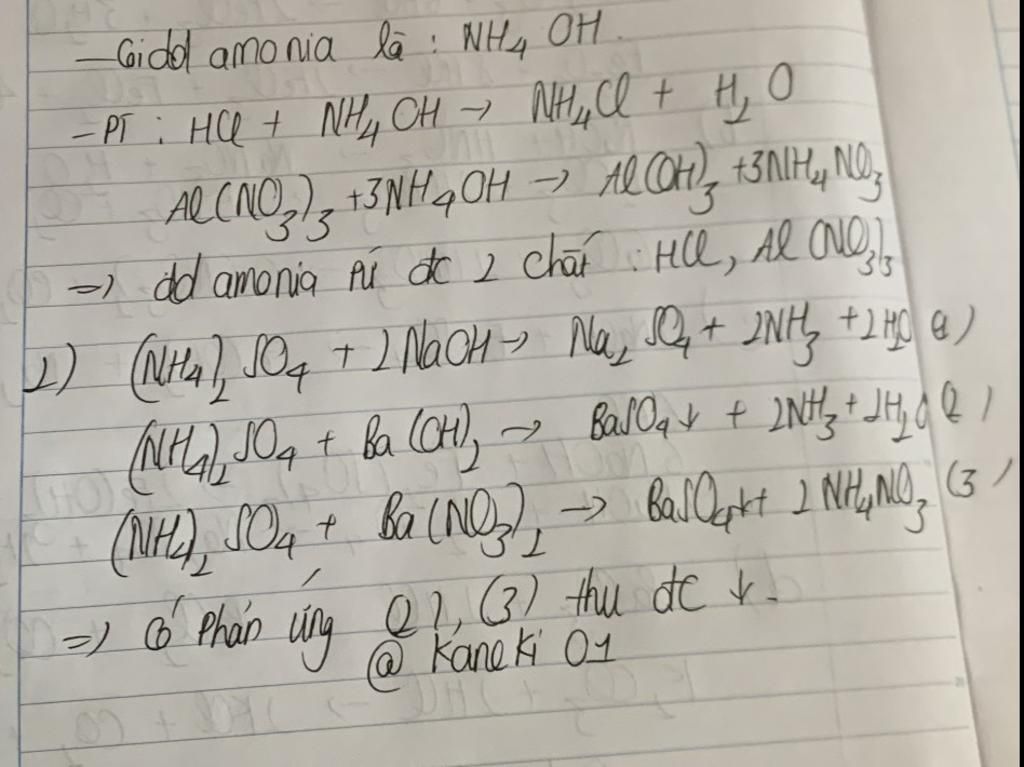 - Gọi dd amonia là : NH4 OH.
- PT : HCl + NH4 OH → NH4Cl + H2O
Al(NO3)3 +3NH4OH → Al(OH)3 +3NH4NO3
=) dd amonia pứ đc 2 chất : HCl, Al(NO3)3
2) (NH4)2SO4 + 2NaOH → Na2SO4 + 2NH3 + 2H2O (1)
(NH4)2SO4 + Ba(OH)2 → BaSO4↓ + 2NH3 + 2H2O (2)
(NH4)2SO4 + Ba(NO3)2 → BaSO4↓ + 2NH4NO3 (3)
=) Có phản ứng (2), (3) thu đc ↓.
@ Kaneki 01